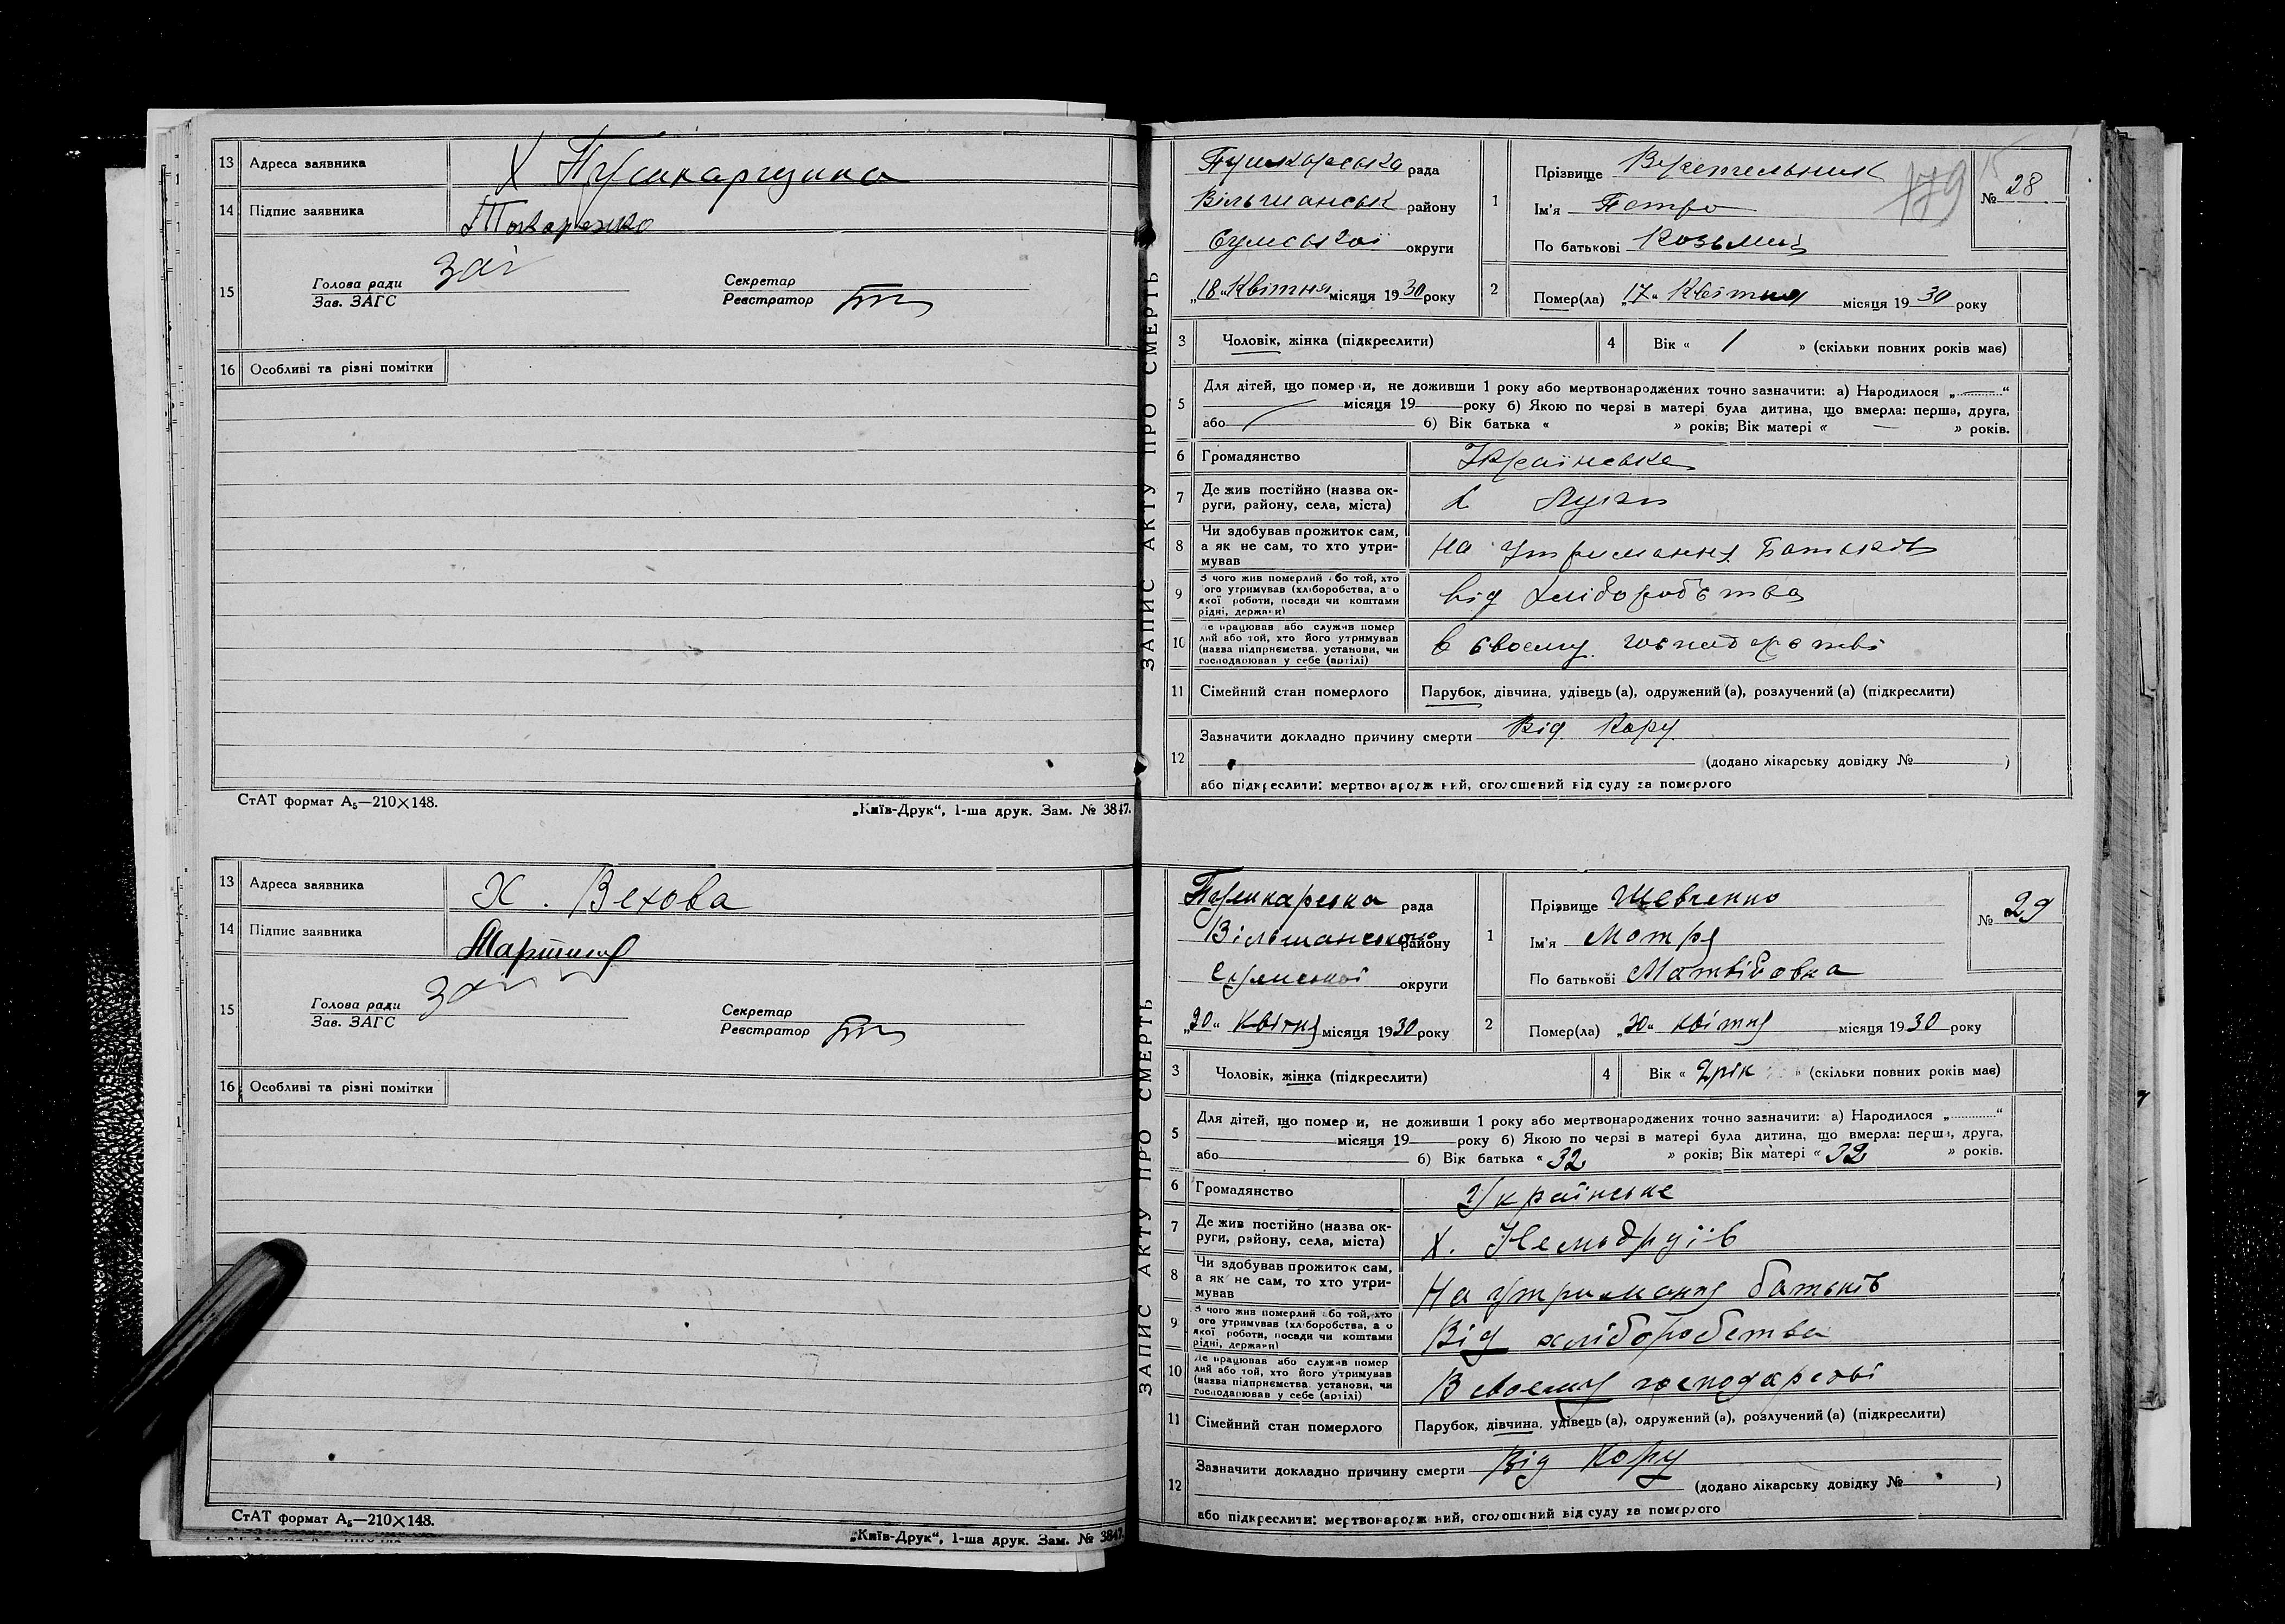 13 Адреса заявника Х Пушкарщина
14 Підпис заявника Токаренко
15 Голова ради
Зав. ЗАГС
Секретар
Реєстратор
16 Особливі та різні помітки
СтАТ формат А₅—210×148.
„Київ-Друк“, 1-ша друк. Зам. № 3847.
13 Адреса заявника Х. Вехова
14 Підпис заявника
15 Голова ради
Зав. ЗАГС
Секретар
Реєстратор
16 Особливі та різні помітки
СтАТ формат А₅—210×148.
„Київ-Друк“, 1-ша друк. Зам. № 3847.
ЗАПИС АКТУ ПРО СМЕРТЬ
Пушкарська рада
Вільшанськ району
Сумської округи
„18“ Квітня місяця 1930 року
1 Прізвище Веретельник
Ім'я Петро
По батькові Козьмич
179
№ 28
2 Помер(ла) „17“ Квітня місяця 1930 року
3 Чоловік, жінка (підкреслити)
4 Вік « 1 » (скільки повних років має)
5 Для дітей, що померли, не доживши 1 року або мертвонароджених точно зазначити: а) Народилося „ “
місяця 19 року б) Якою по черзі в матері була дитина, що вмерла: перша, друга,
або б) Вік батька « » років; Вік матері « — » років.
6 Громадянство Українське
7 Де жив постійно (назва ок-
руги, району, села, міста) х
8 Чи здобував прожиток сам,
а як не сам, то хто утри-
мував На утриманні Батьків
9 З чого жив померлий або той, хто
його утримував (хліборобства, або
якої роботи, посади чи коштами
рідні, держави) від хліборобства
10 Де працював або служив помер
лий або той, хто його утримував
(назва підприємства, установи, чи
господарював у себе (артілі) в своєму господарстві
11 Сімейний стан померлого Парубок, дівчина, удівець (а), одружений (а), розлучений (а) (підкреслити)
12 Зазначити докладно причину смерти Від Кору
(додано лікарську довідку № )
або підкреслити: мертвонароджений, оголошений від суду за померлого
ЗАПИС АКТУ ПРО СМЕРТЬ
Пушкарська рада
Вільшанського району
Сумської округи
„30“ Квітня місяця 1930 року
1 Прізвище Шевченко
Ім'я Мотря
По батькові Матвійовна
№ 29
2 Помер(ла) „30“ квітня місяця 1930 року
3 Чоловік, жінка (підкреслити)
4 Вік « рік » (скільки повних років має)
5 Для дітей, що померли, не доживши 1 року або мертвонароджених точно зазначити: а) Народилося „ “
місяця 19 року б) Якою по черзі в матері була дитина, що вмерла: перша, друга,
або б) Вік батька « 32 » років; Вік матері « 32 » років.
6 Громадянство Українське
7 Де жив постійно (назва ок-
руги, району, села, міста) Х.
8 Чи здобував прожиток сам,
а як не сам, то хто утри-
мував На утримання батьків
9 З чого жив померлий або той, хто
його утримував (хліборобства, або
якої роботи, посади чи коштами
рідні, держави) Від хліборобства
10 Де працював або служив помер
лий або той, хто його утримував
(назва підприємства, установи, чи
господарював у себе (артілі) В своєму господарсві
11 Сімейний стан померлого Парубок, дівчина, удівець (а), одружений (а), розлучений (а) (підкреслити)
12 Зазначити докладно причину смерти Від Кору
(додано лікарську довідку № )
або підкреслити: мертвонароджений, оголошений від суду за померлого